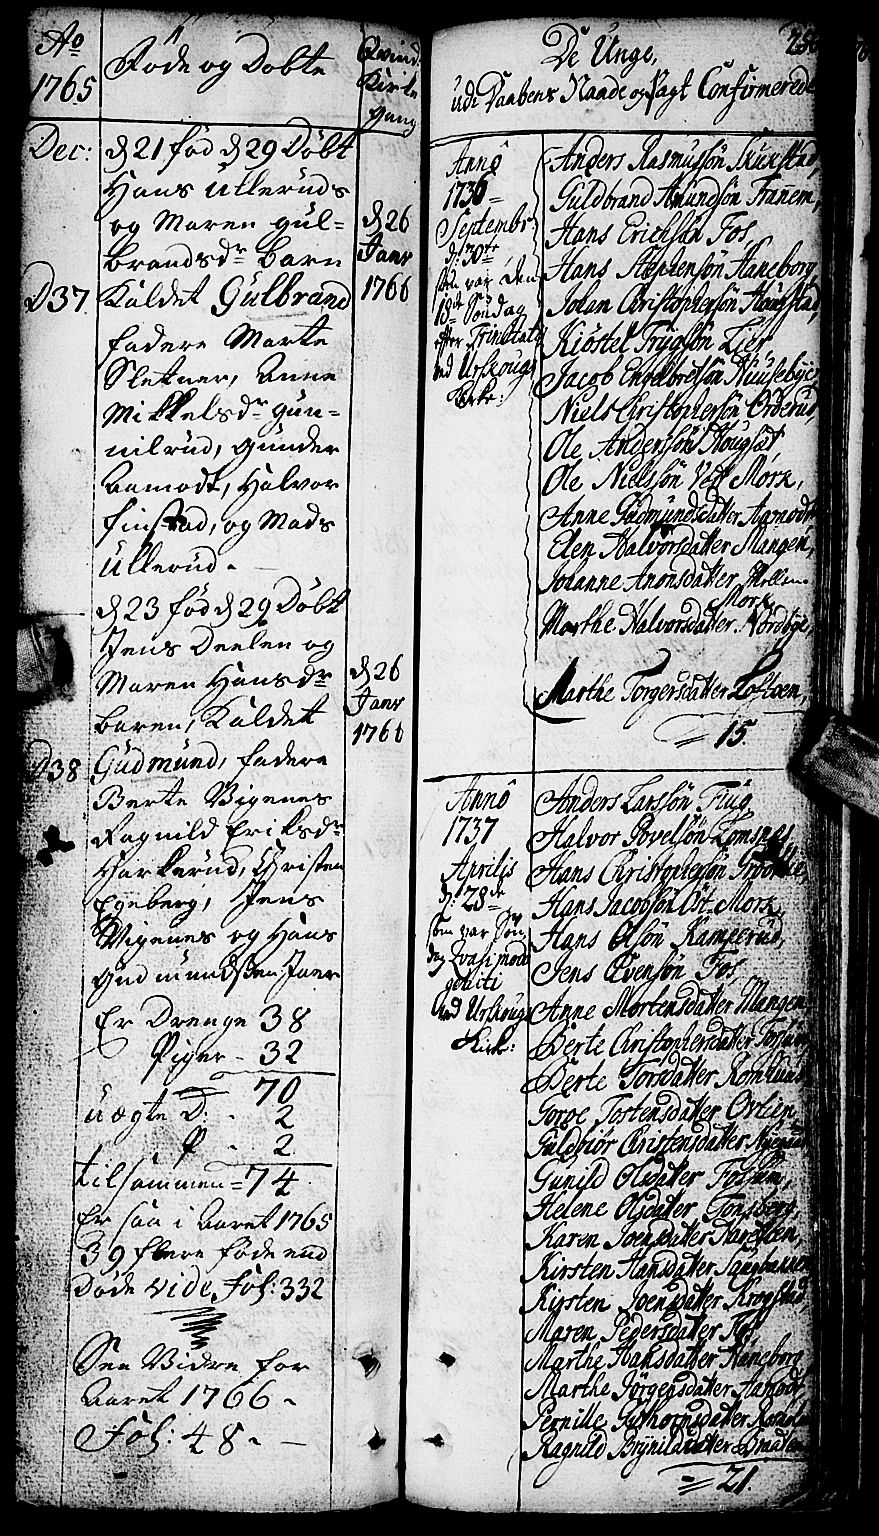 Ao
1765
Føde og Døbte
Qvind
Kirke
gang
Dec:
d 21 fød d 29 Døbt
Hans Ulleruds
og Maren gul=
brandsdr barn
Kaldet Gulbrand
D37
d 26
Janv
1766
fadere Marte
Sletner, Anne
Mikkelsdr gun=
nilrud, Gunder
Aamodt, Halvor
finstad, og Mads
Ullerud.
d 23 fød d 29 Døbt
Jens Deelen og
Maren Hansdr
baren, Kaldet
D38
Gudmund, fadere
d 26
Janv
1766
Berte Vigenes
Ragnild Eriksdr
Harkerud, Christen
Egeberg, Jens
Vigenes og Hans
Gudmundssen Joer
Er Drenge 38
Piger - 32
70
uægte D: - 2
P - 2
tilsammen = 74
Er saa i Aaret 1765
39 flere føde end
Døde vide Fol: 332
See Videre for
Aaret 1766 -
Fol: 48 -
De Unge,
udi Daabens Naade og Pagt Confirmerede
Anno
1736
Septembr:
d: 30te
som var den
18de Søndag
efter Trinitatis
ved Urskougs
Kirke:
Anders Rasmussøn
Guldbrand Amundsøn Tranem,
Hans Erichsøn Fos,
Hans Stephensøn Haneborg,
Johan Christophersøn
Kiøstel Trygsøn Lier
Jacob Engelbretsøn Huusebye,
Niels Christophersøn Orderud,
Ole Anderssøn Hougset,
Ole Nielssøn Vest Mork,
Anne Gudmundsdatter Aamodt
Elen Halvorsdatter Mangen,
Johanne Anonsdatter Mellem
Mork
Marthe Halvorsdatter Nordbye,
Marthe Torgersdatter Loftuen,
15.
Anno
1737
Aprilis
d: 28de
som var Søn
dag Qvasimodo
geniti
ved Urskougs
Kirk:
Anders Larssøn Flug,
Halvor Povelsøn Lomsnes,
Hans Christophersøn
Hans Jacobsøn Øst-Mork,
Hans Olsøn Kamperud,
Jens Evensøn Fos,
Anne Mortensdatter Mangen
Berte Christophersdatter
Berte Torsdatter
Goroe Tostensdatter Ovlien
Guldbiør Christensdatter
Gunild Olsdatter Fossum,
Helene Olsdatter Tonsberg,
Karen Joensdatter
Kirsten Hansdatter
Kirsten Joensdatter Krogstad,
Maren Pedersdatter Fos,
Marthe Hansdatter Haneborg
Marthe Jørgensdatter Aamodt,
Pernille
Ragnild Brynildsdatter
21.